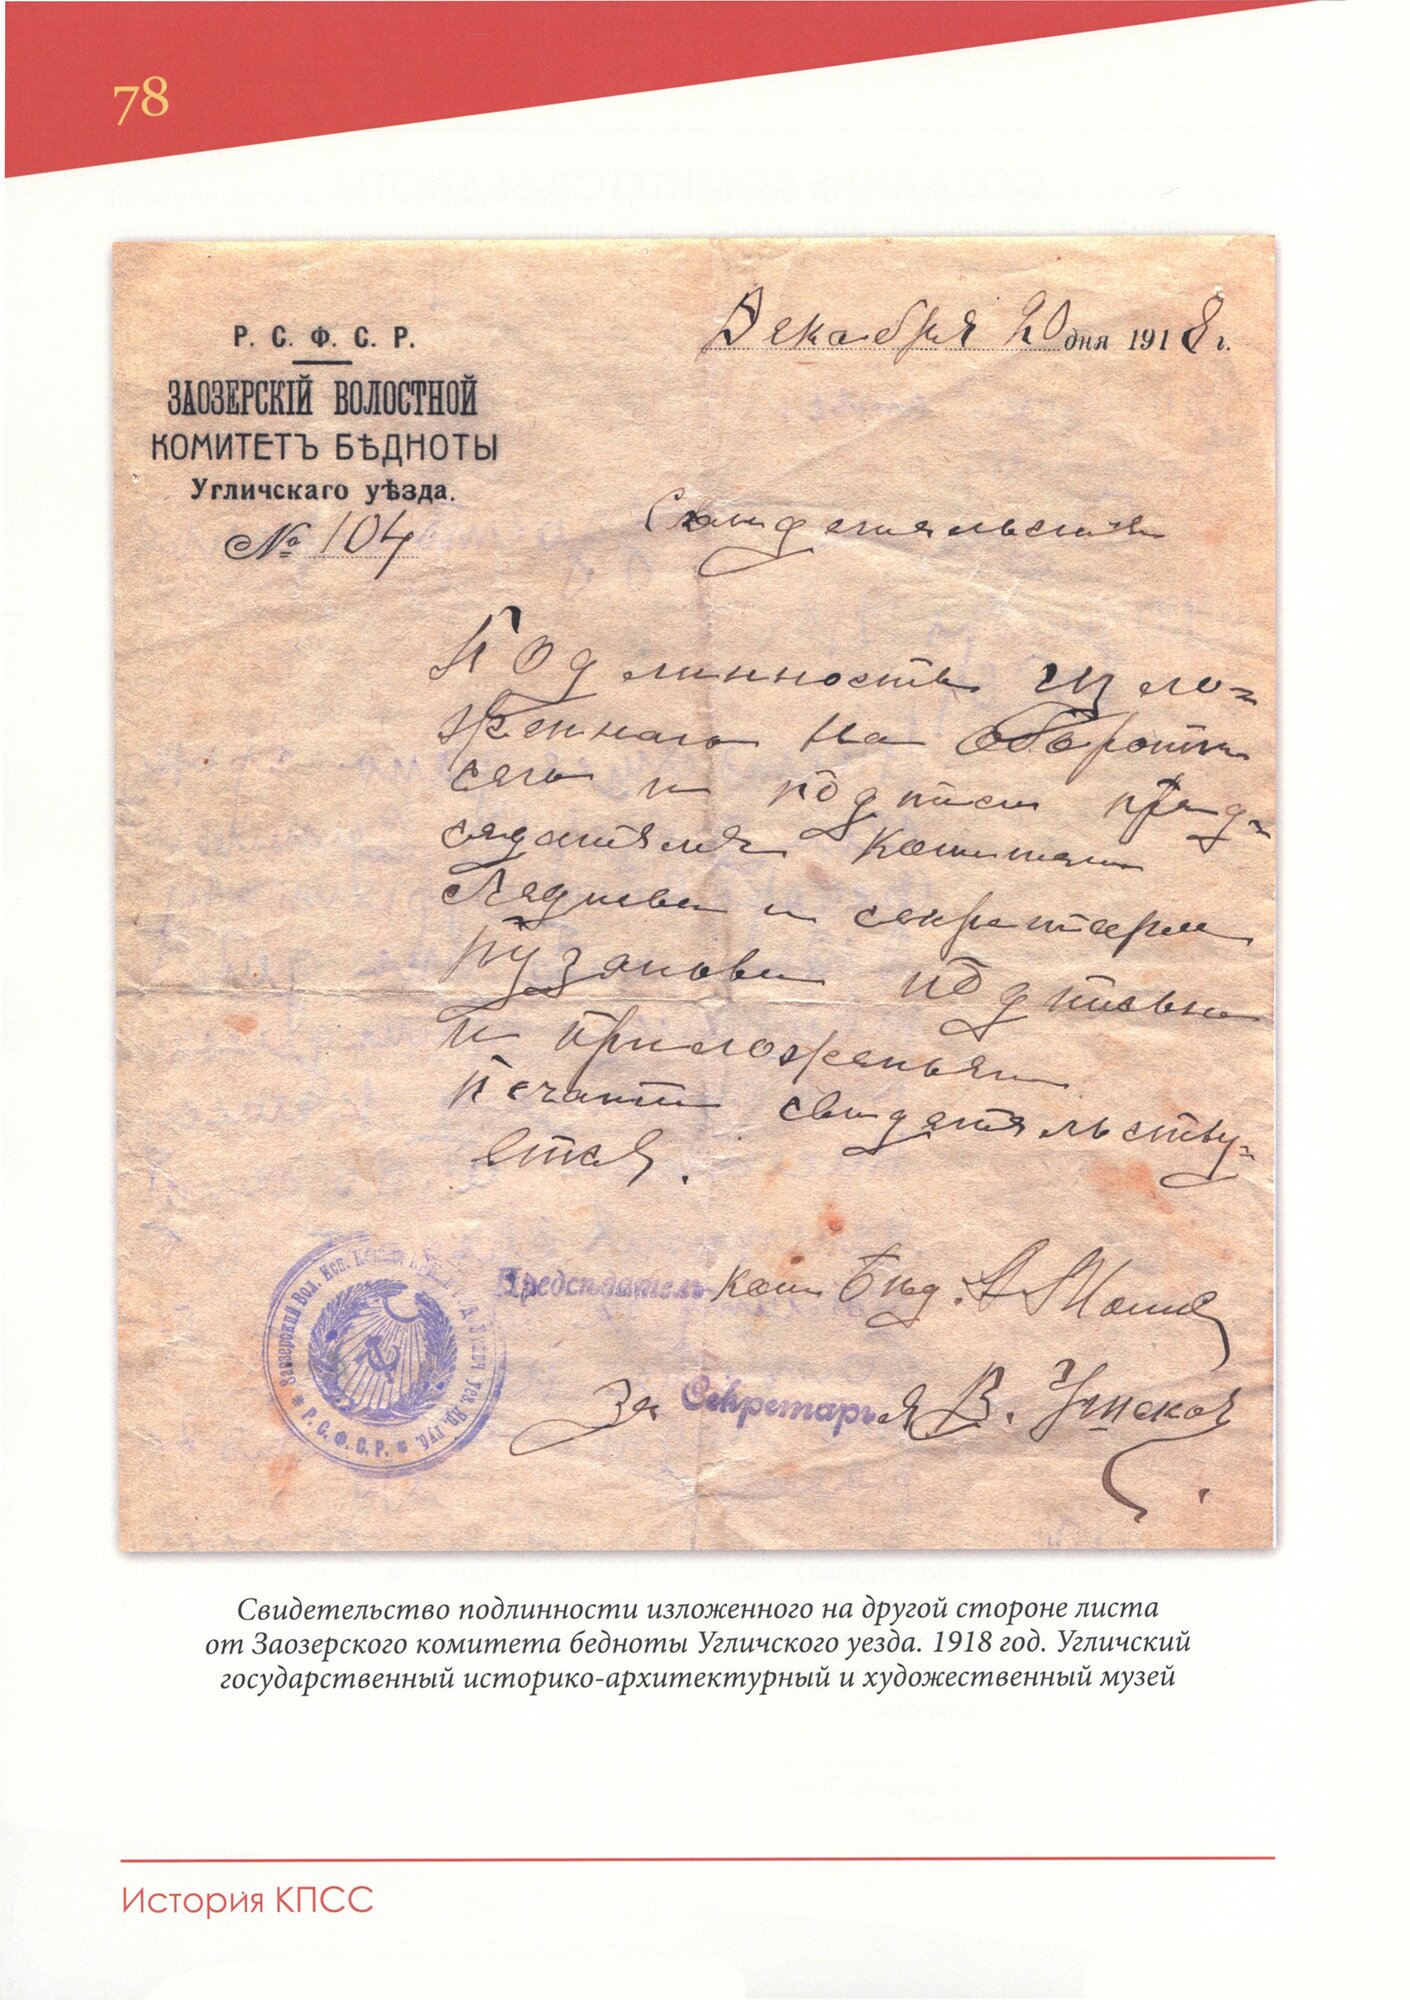 78
Р. С. Ф. С. Р.
ЗАОЗЕРСКІЙ ВОЛОСТНОЙ
КОМИТЕТЪ БѢДНОТЫ
Угличскаго уѣзда.
№ 104
Декабря 20 дня 1918 г.
Свидетельство
Подлинность изло-
женнаго на обороте
сего и подписи пред-
седателя комитета
и секретаря
Рузанова подписью
и приложеньем
печати свидетельству-
ется.
Председатель Ком Бед.
За Секретаря В.
Заозерский Вол. Исп.
Р. С. Ф. С. Р.
Свидетельство подлинности изложенного на другой стороне листа
от Заозерского комитета бедноты Угличского уезда. 1918 год. Угличский
государственный историко-архитектурный и художественный музей
История КПСС